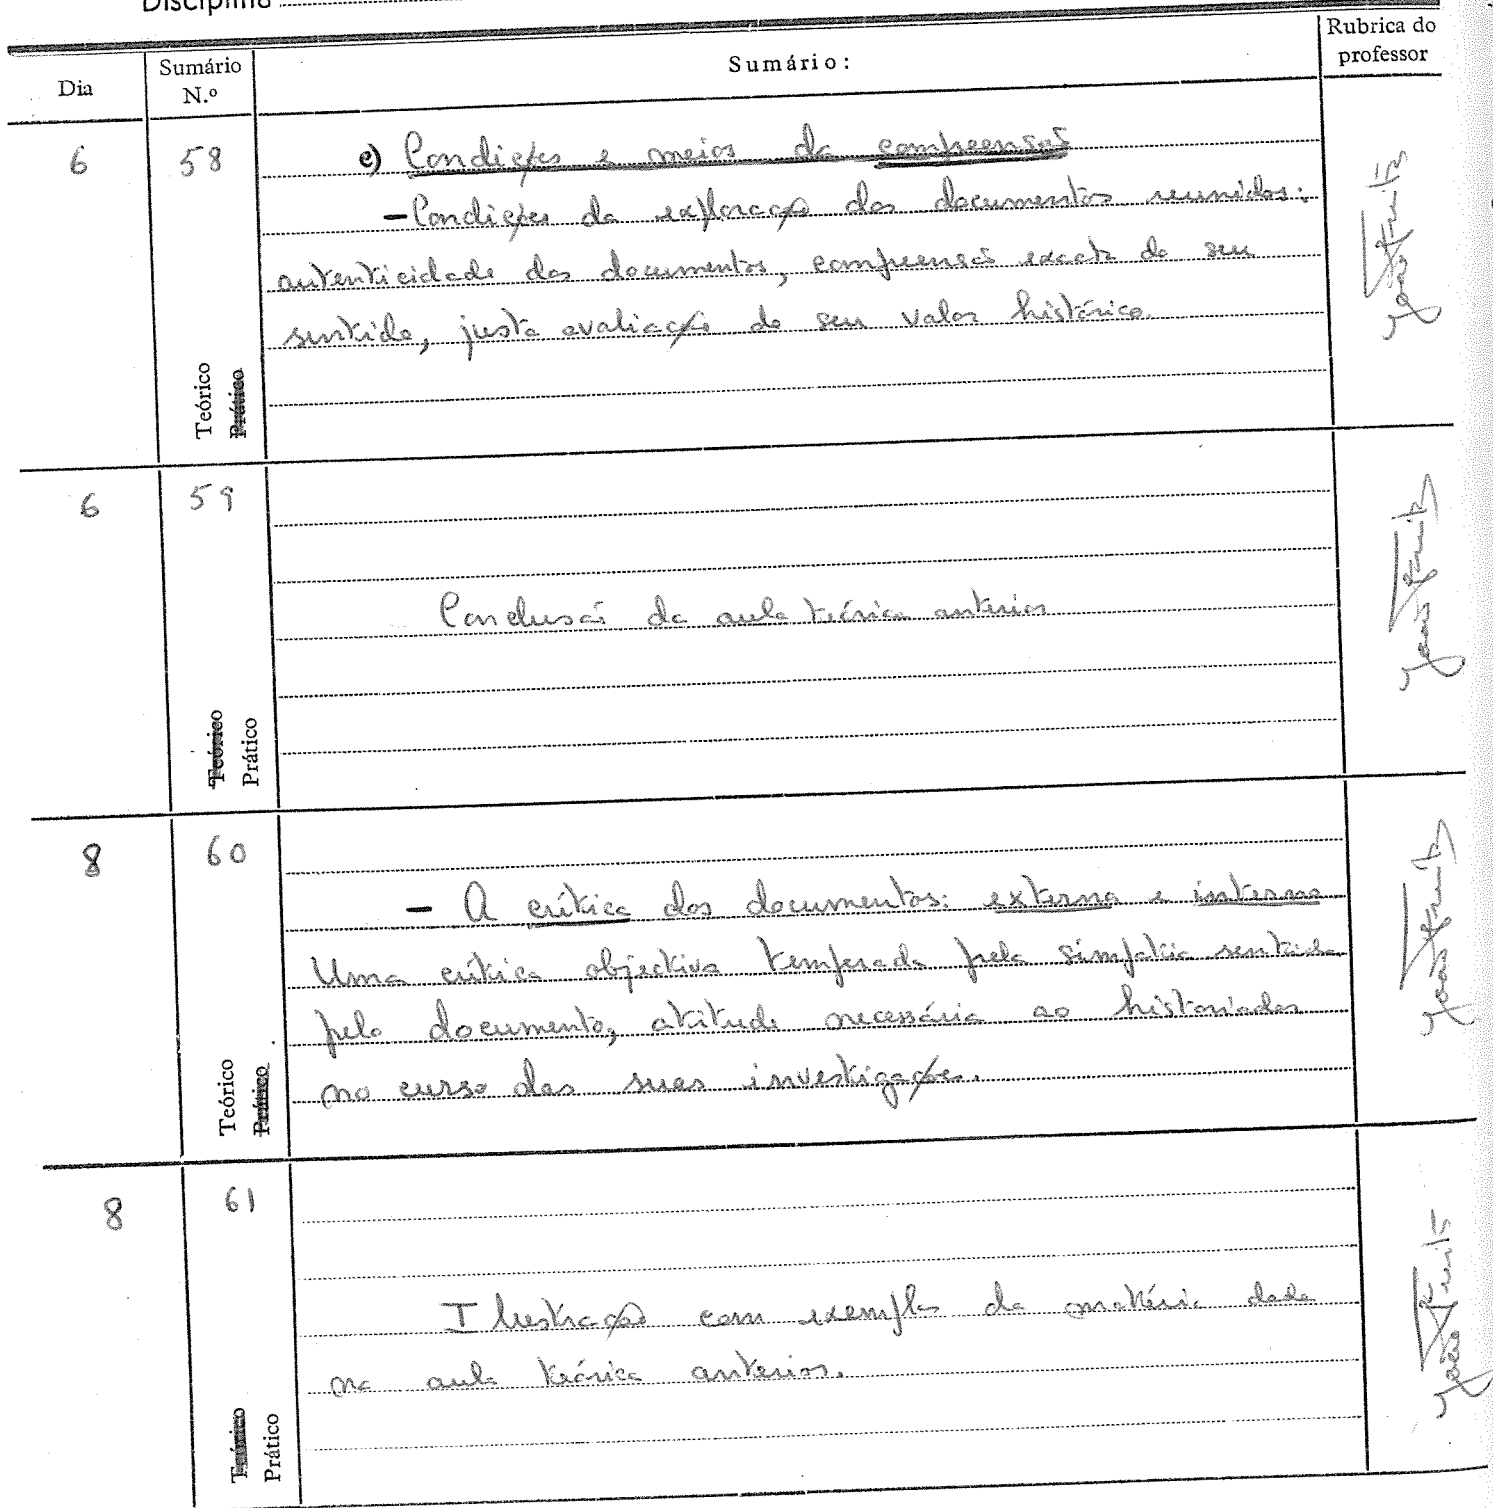 Disciplina
Dia
Sumário N.º
Sumário:
Rubrica do professor
6
58
e) Condições e meios da compreensão
- Condições da exploração dos documentos reunidos:
autenticidade dos documentos, compreensão exacta do seu
sentido, justa avaliação do seu valor histórico.
Teórico
Prático
6
59
Conclusão da aula teórica anterior
Teórico
Prático
8
60
- A crítica dos documentos: externa e interna
Uma crítica objectiva temperada pela simpatia sentida
pelo documento, atitude necessária ao historiador
no curso das suas investigações.
Teórico
Prático
8
61
Ilustração com exemplos da matéria dada
na aula teórica anterior.
Teórico
Prático